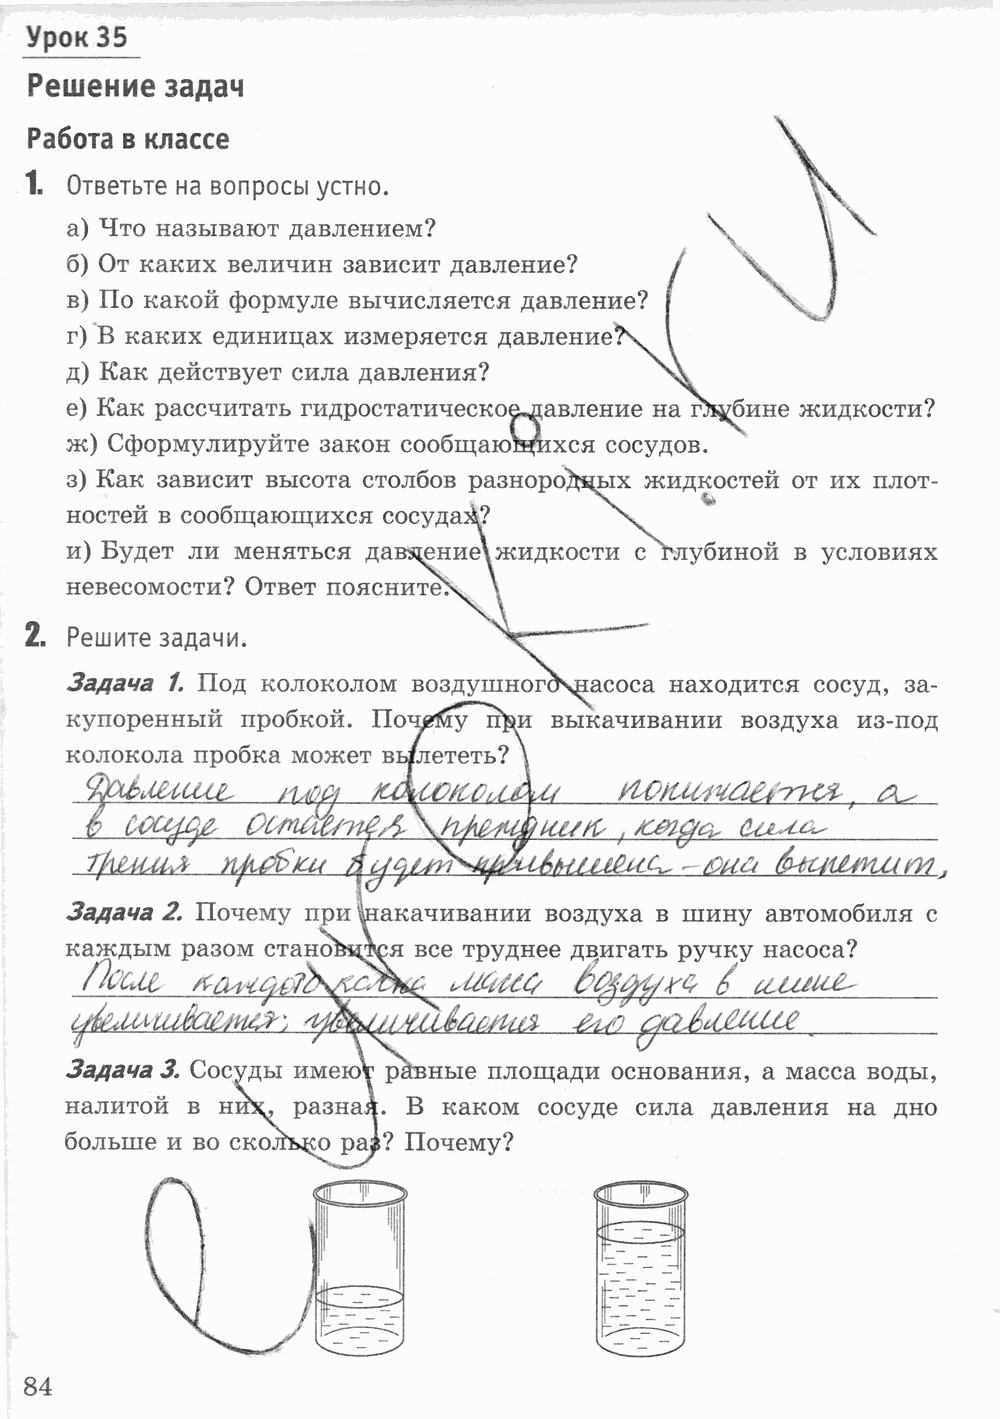 Урок 35
Решение задач
Работа в классе
1. Ответьте на вопросы устно.
а) Что называют давлением?
б) От каких величин зависит давление?
в) По какой формуле вычисляется давление?
г) В каких единицах измеряется давление?
д) Как действует сила давления?
е) Как рассчитать гидростатическое давление на глубине жидкости?
ж) Сформулируйте закон сообщающихся сосудов.
з) Как зависит высота столбов разнородных жидкостей от их плот-
ностей в сообщающихся сосудах?
и) Будет ли меняться давление жидкости с глубиной в условиях
невесомости? Ответ поясните.
2. Решите задачи.
Задача 1. Под колоколом воздушного насоса находится сосуд, за-
купоренный пробкой. Почему при выкачивании воздуха из-под
колокола пробка может вылететь?
Давление под колоколом понижается, а
в сосуде остается преждник, когда сила
трения пробки будет привышена - она вылетит,
Задача 2. Почему при накачивании воздуха в шину автомобиля с
каждым разом становится все труднее двигать ручку насоса?
После каждого качка масса воздуха в шине
увеличивается; увеличивается его давление.
Задача 3. Сосуды имеют равные площади основания, а масса воды,
налитой в них, разная. В каком сосуде сила давления на дно
больше и во сколько раз? Почему?
84